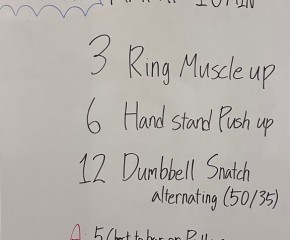 3 Ring Muscle up
6 Hand stand Push up
12 Dumbbell Snatch
alternating (50/35)
A: 5 Chest to bar or Pull